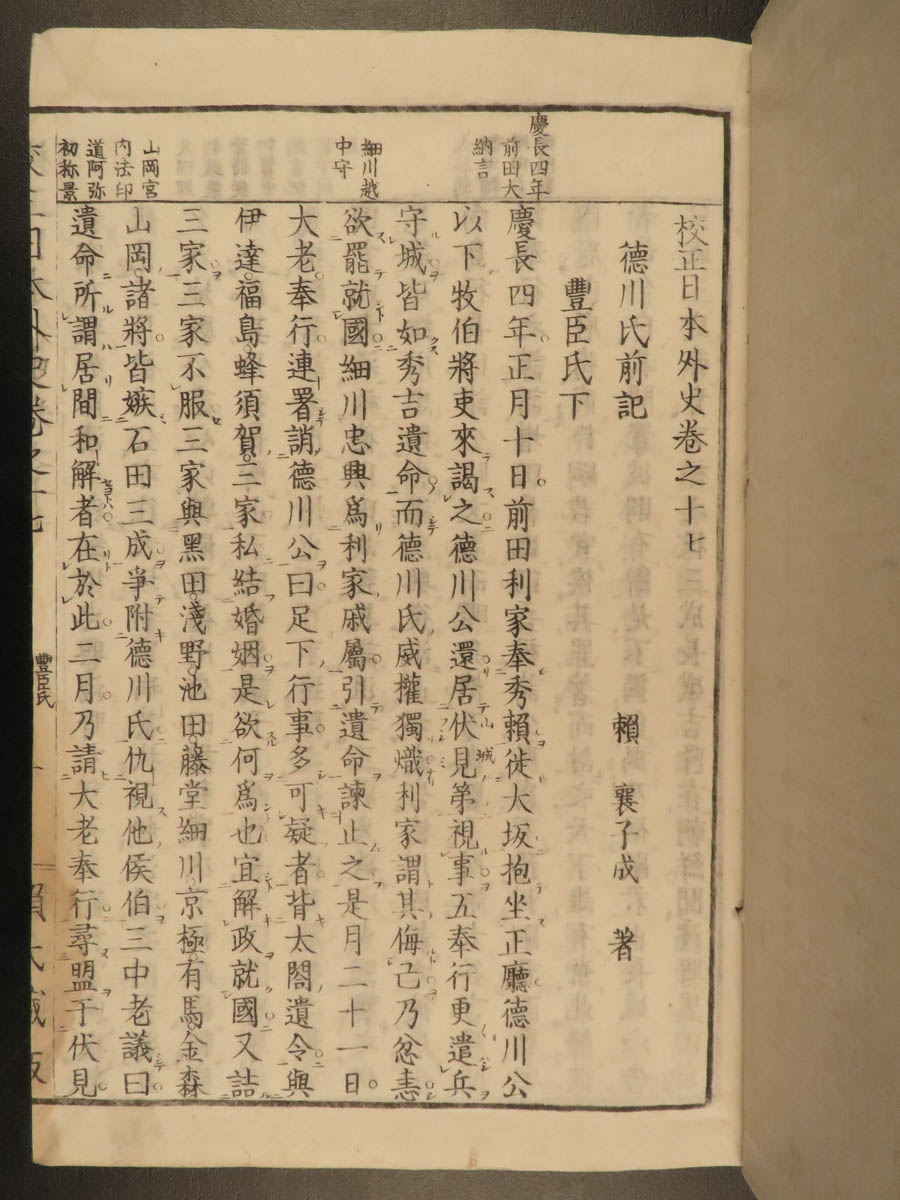 校正日本外史卷之十七
德川氏前記 賴 襄子成 著
豐臣氏下
慶長四年
前田大
納言
細川越
中守
山岡宮
内法印
道阿弥
初称景
慶長四年正月十日前田利家奉秀賴徙大坂抱坐正廳德川公
以下牧伯將吏來謁之德川公還居伏見第視事五奉行更遣兵
守城皆如秀吉遺命而德川氏威權獨熾利家謂其侮己乃忿恚
欲罷就國細川忠興爲利家戚屬引遺命諫止之是月二十一日
大老奉行連署誚德川公曰足下行事多可疑者背太閤遺令與
伊達福島蜂須賀三家私結婚姻是欲何爲也宜解政就國又詰
三家三家不服三家與黑田淺野池田藤堂細川京極有馬金森
山岡諸將皆嫉石田三成爭附德川氏仇視他侯伯三中老議曰
遺命所謂居間和解者在於此二月乃請大老奉行尋盟于伏見
豐臣氏